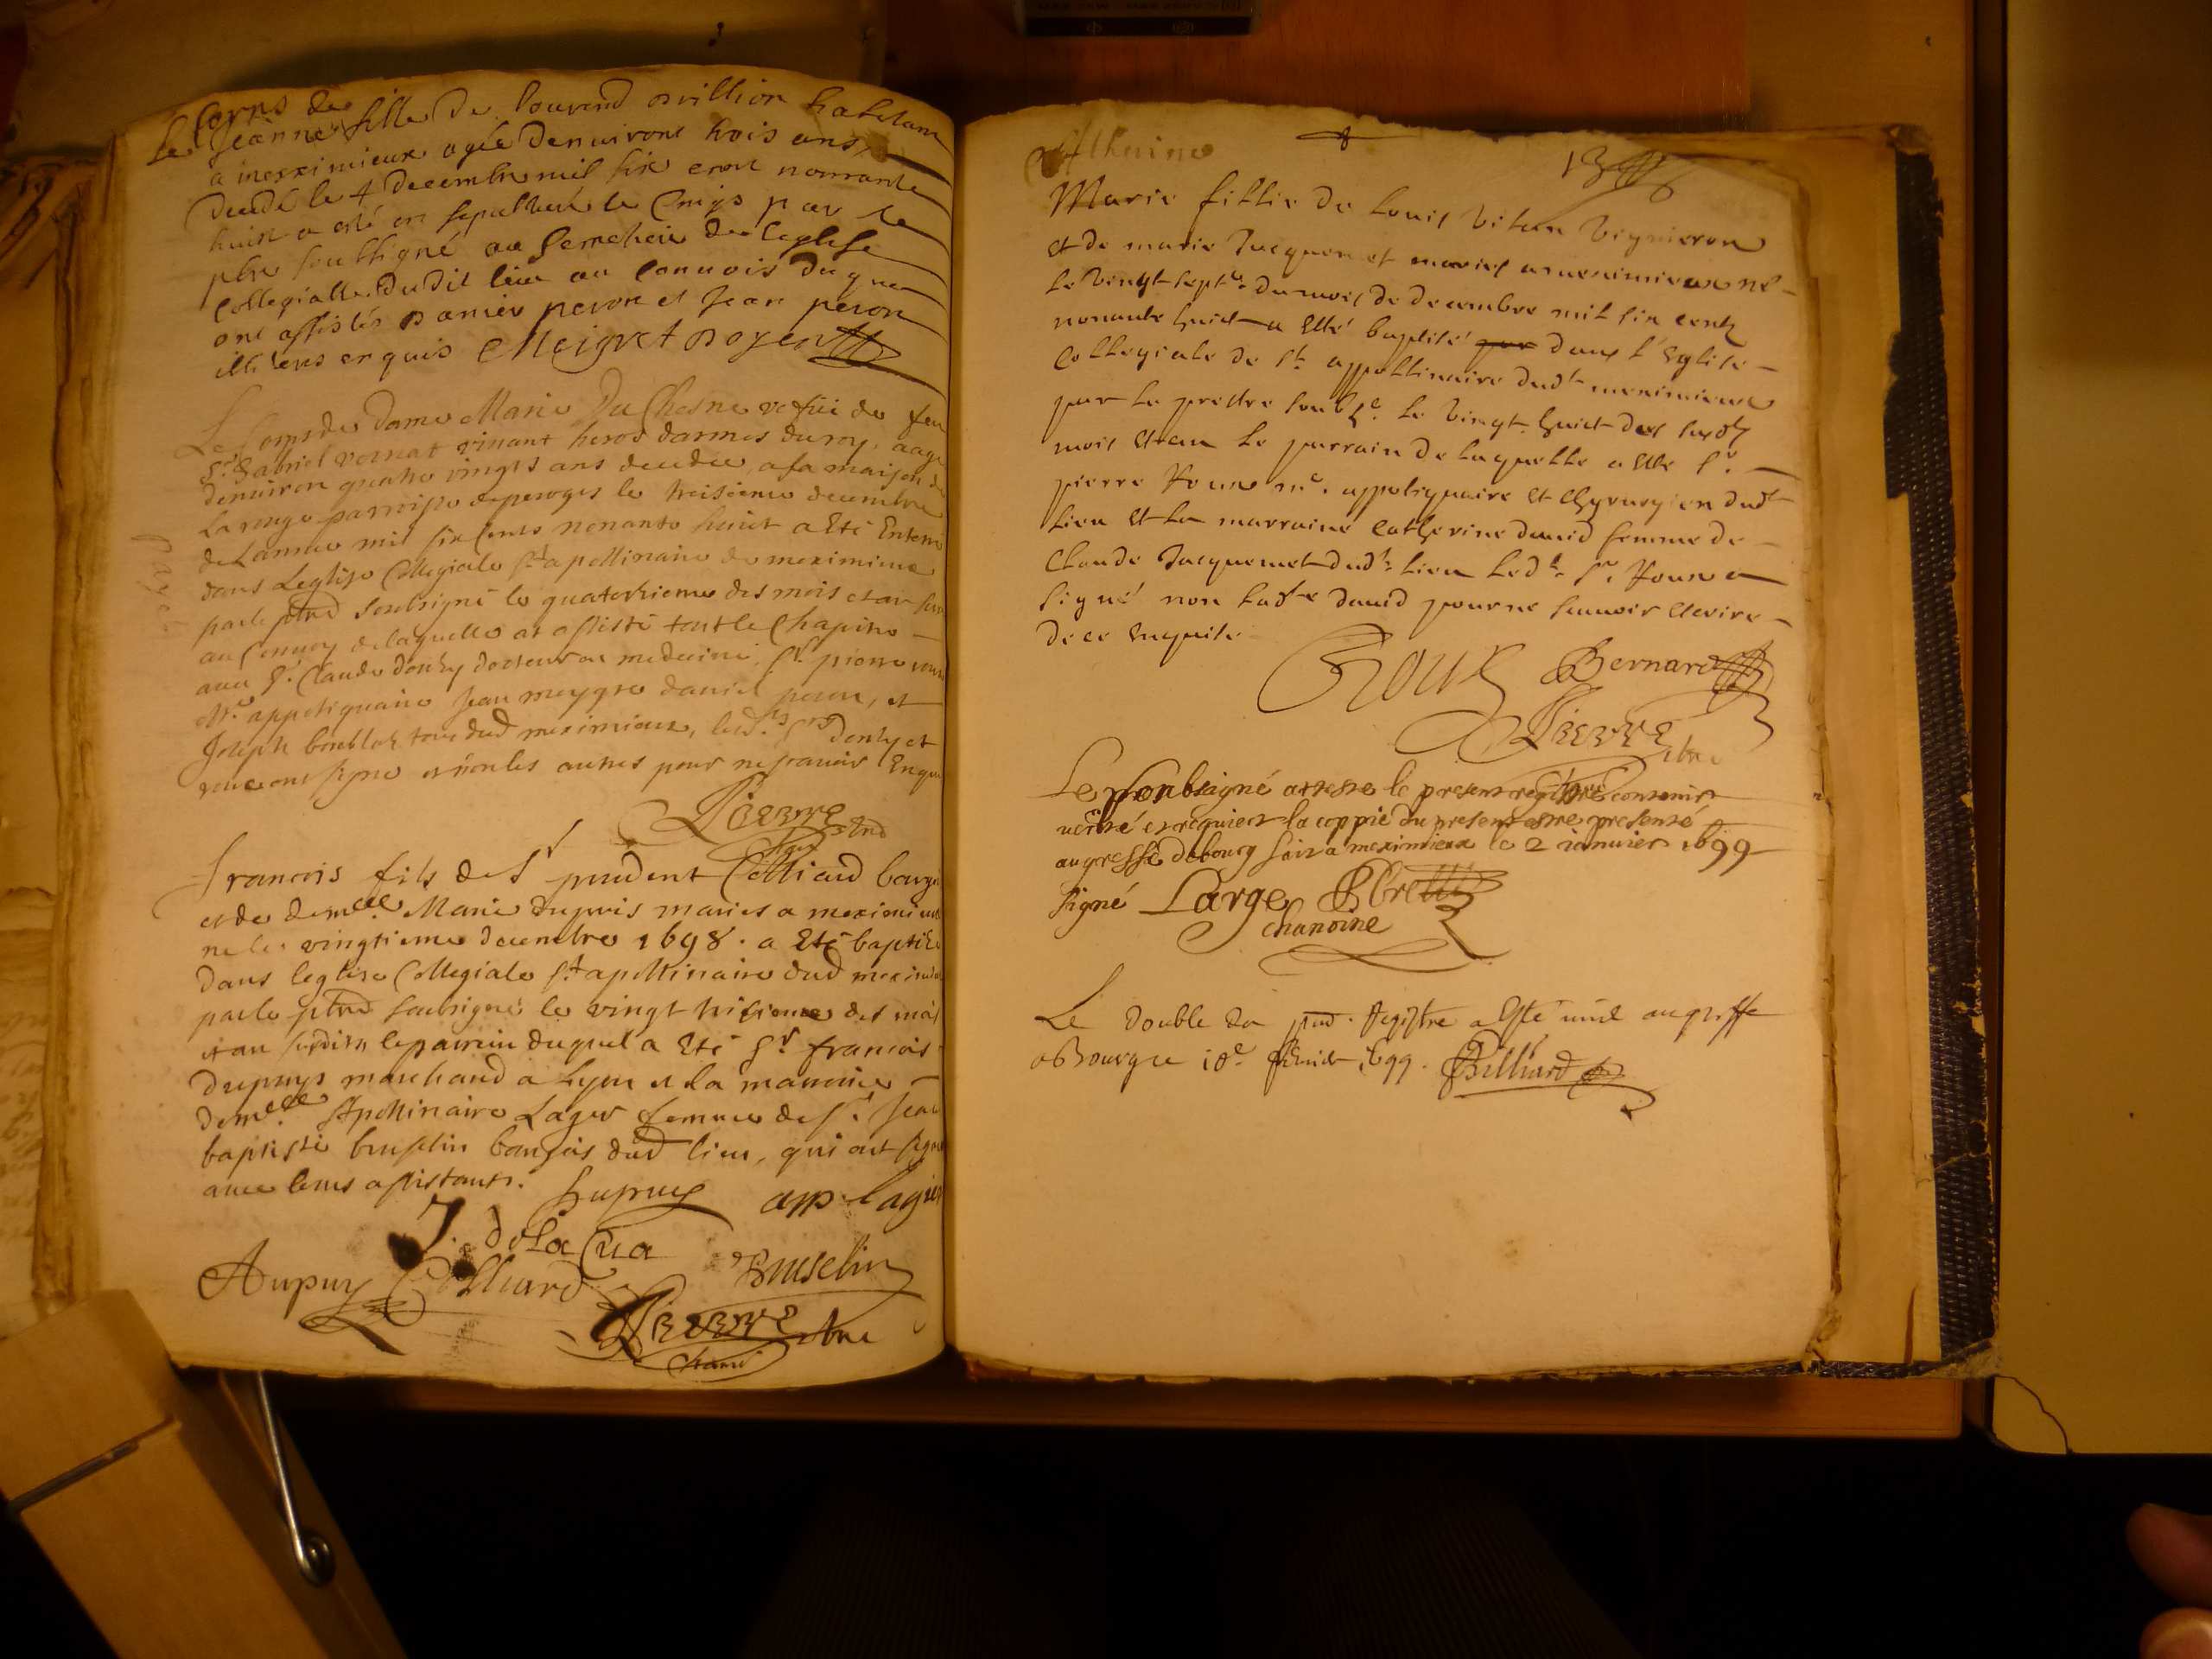 Le Corps de
Jeanne fille de
a meximieux agée denuiront trois ans
decedé le 4 decembre mil six cent nonante
huict a esté en sepulturé le par le
pbre soubsigné au de leglise
collegialle dudit lieu au conuois duquel
ont assistés peron et Jean peron
enquis Meigret Doyen
Le Corps de Dame Marie Du Chesne vefue de feu
Sr. Gabriel vornat viuant heros darmes du roy, aagé
denuiron quatre vingts ans decedee, a sa maison de
La rouge parroisse de peroges le treisieme decembre
de Lannee mil six Cents nonante huict a Eté Enterré
dans Leglise Collegiale St apollinaire de meximieux
par le pbre soubsigné le quatorsieme des mois et an
au Conuoy de laquelle at assisté tout le Chapitre
auec Sr. Claude donby docteur en medecine, Sr. pierre roux
Mre. appotiquaire Jean meygre daniel peron, et
Joseph tous dud meximieux, led.ts Srs donby et
roux ont signé et non les autres pour ne scauoir Enquis
Pierre
francois fils de Sr prudent Colliard bourgs
et de demelle. Marie dupuis mariés a meximieux
ne le vingtieme decembre 1698. a Eté baptisé
dans leglise Collegiale St apollinaire dud meximieux
par le pbre soubsigné le vingt troisieme des mois
et an susdits le parrein duquel a Eté Sr. francois
dupuys marchand a Lyon et la marreine
demelle. Apollinaire Lager femme de Sr. Jean
baptiste bruselin bourgois dud lieu, qui ont signé
auec leurs assistants. Dupuys app lagier
J. dela Cua
Dupuy Colliard Buselin
Pierre pbre
chanoi
13
Marie fillie de Louis Vitun Vignieron
et de marie Jacquemet mariés a meximieux né
le Vingt sept.e du mois de decembre mil six cents
nonante huict a esté baptisé par dans l'Eglise
Collegiale de St. appollinaire dudt meximieux
par le prestre soubs.e le Vingt huict des susds
mois et an le parrain de laquelle a esté Sr.
pierre Roux me. appotiquaire et Chyrurgien dudt
Lieu et la marraine Catherine dauid femme de
Claude Jacquemet dudt. Lieu ledt. Sr. Roux a
signé non ladte dauid pour ne scauoir escrire
de ce enquise
Roux Bernard
Pierre pbre
Le soubsigné atteste le present registre contenir
uerité et requiert la coppie du present estre presenté
au greffe de bourg fait a meximieux le 2 ianuier 1699
signé Large
chanoine
Le double du pnt. Registre a esté mis au greffe
a Bourg ce 10e feburier 1699. Billiard